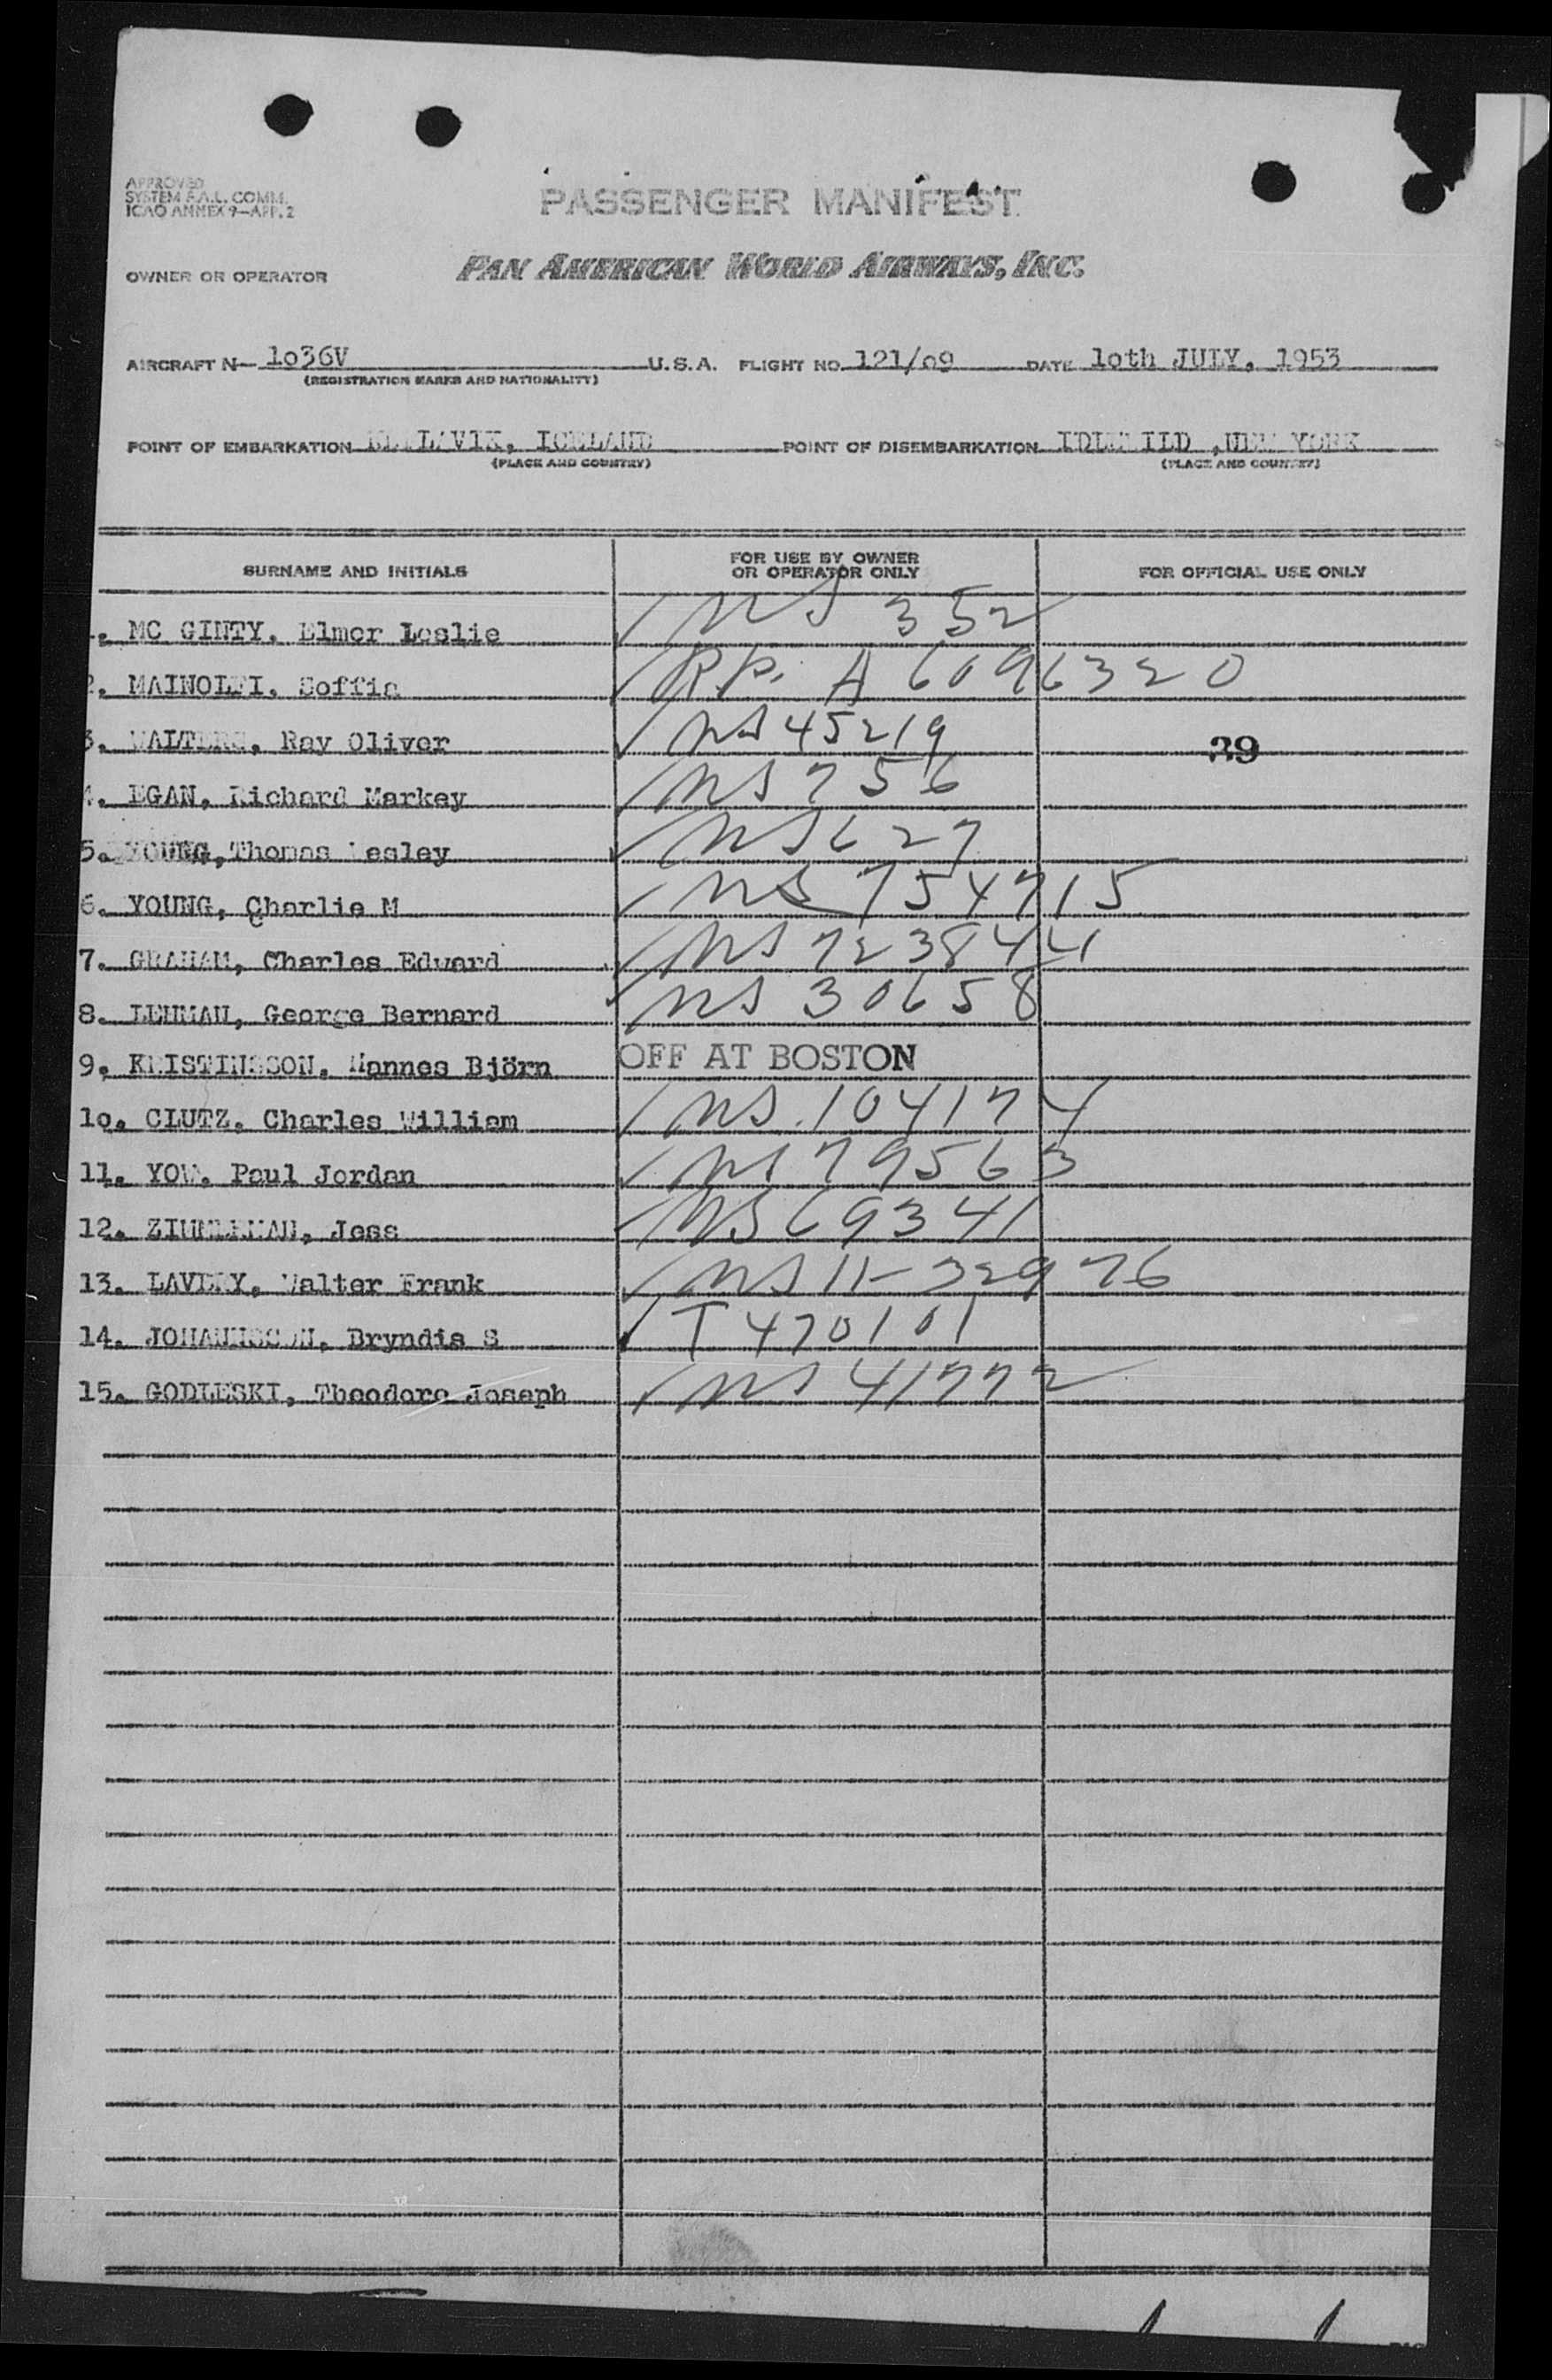 APPROVED
SYSTEM F.A.L. COMM.
ICAO ANNEX 9—APP. 2
PASSENGER MANIFEST
OWNER OR OPERATOR PAN AMERICAN WORLD AIRWAYS, INC.
AIRCRAFT N— 1o36V U.S.A. FLIGHT NO. 121/o9 DATE 1oth JULY, 1953
(REGISTRATION MARKS AND NATIONALITY)
POINT OF EMBARKATION ICELAND POINT OF DISEMBARKATION IDLEWILD ,NEW YORK
(PLACE AND COUNTRY) (PLACE AND COUNTRY)
SURNAME AND INITIALS FOR USE BY OWNER OR OPERATOR ONLY FOR OFFICIAL USE ONLY
MC GINTY, Elmer Leslie NS 352
MAINOLFI, Soffia P.P. A 6096320
WALTERS, Ray Oliver NS 45219 39
EGAN, Richard Markey NS 756
5. YOUNG, Thomas Wesley NS 627
6. YOUNG, Charlie M NS 754715
7. GRAHAM, Charles Edward NS 723844
8. LEHMAN, George Bernard NS 30658
9. KRISTINSSON, Hannes Björn OFF AT BOSTON
1o. CLUTZ, Charles William NS 104174
11. YOW, Paul Jordan NS 79563
12. ZIMMERMAN, Jess NS 69341
13. Walter Frank NS 11-32976
14. Bryndis S T 470101
15. GODLESKI, Theodore Joseph NS 41772